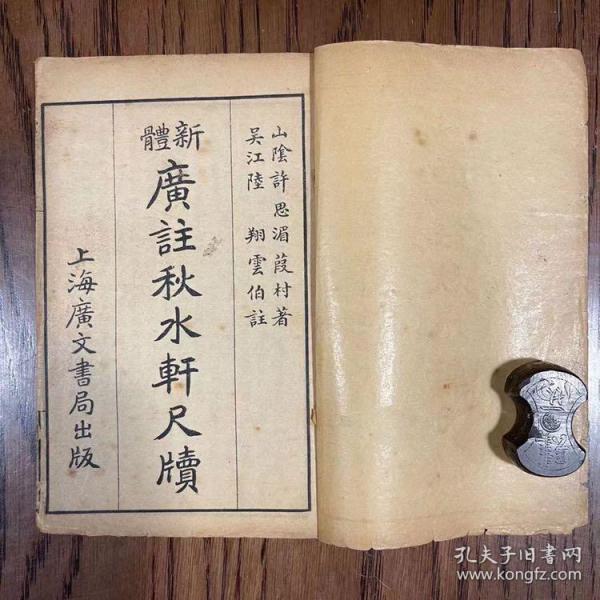 山陰許思湄葭村著
吴江陸翔雲伯註
新體
廣註秋水軒尺牘
上海廣文書局出版
孔夫子旧书网
www.kongfz.com